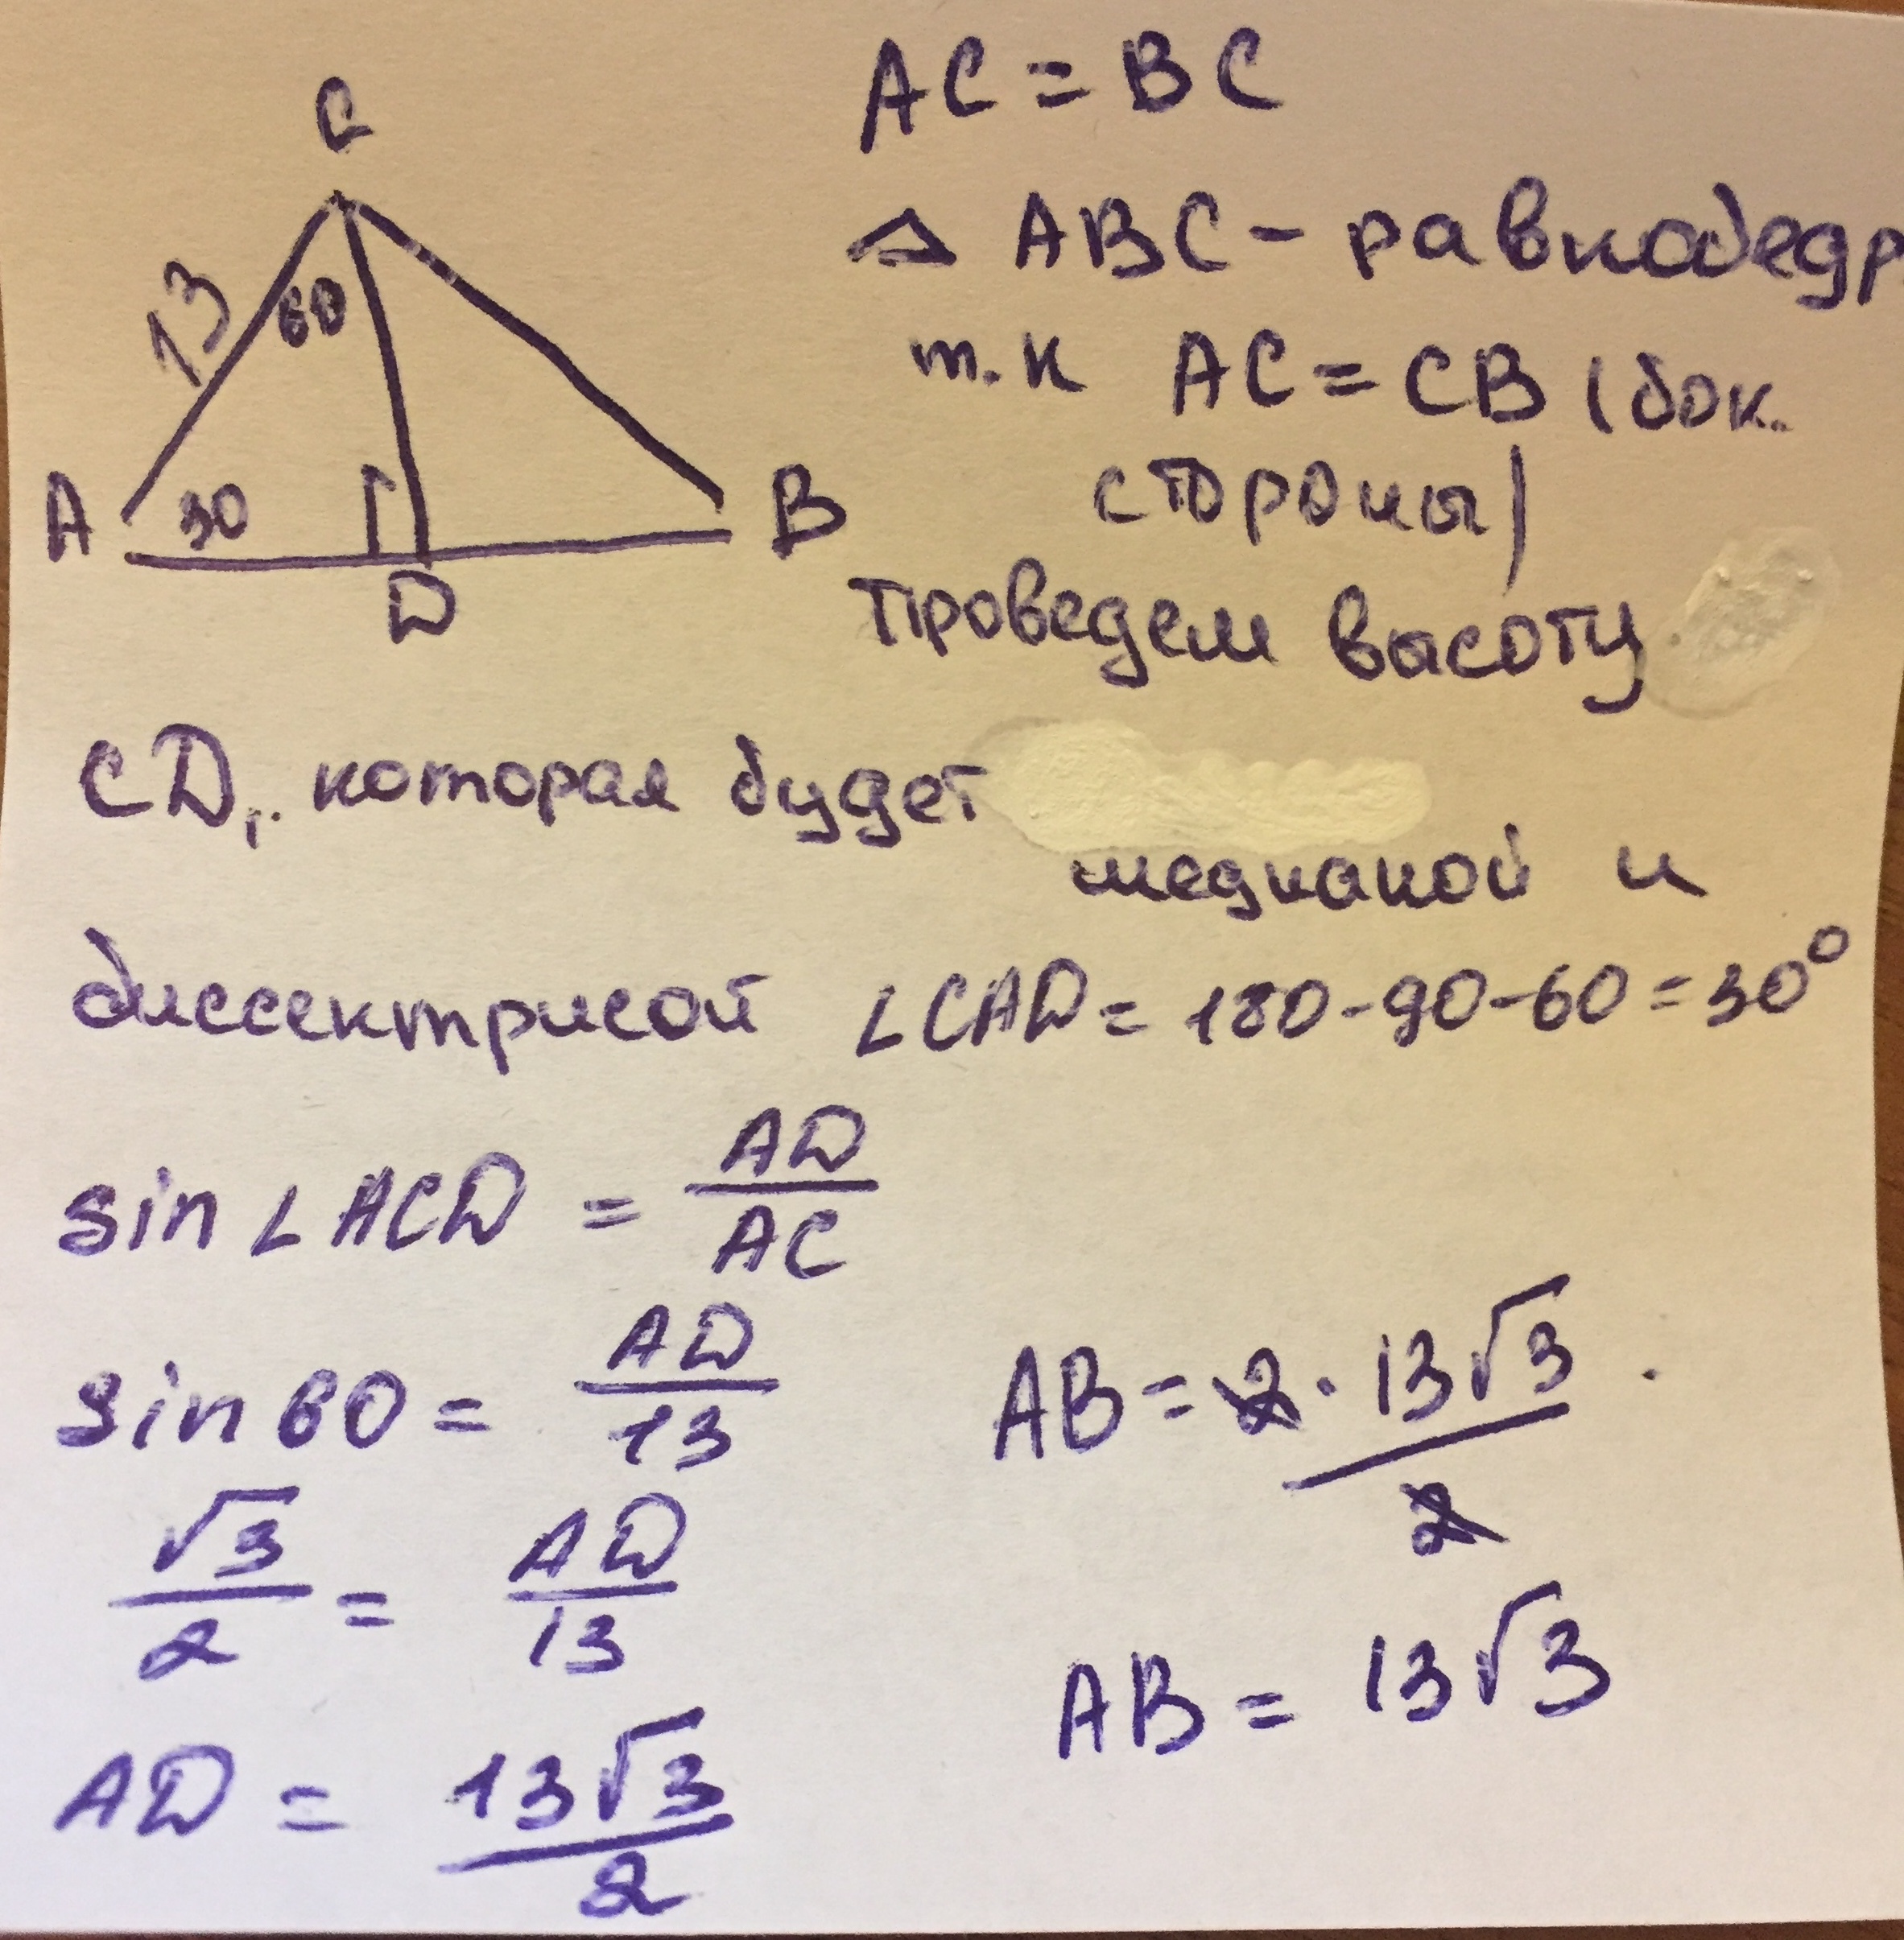 C
13
60
A
30
D
B
AC = BC
△ ABC - равнобедр
т.к AC = CB (бок.
стороны)
Проведем высоту
CD, которая будет
медианой и
биссектрисой ∠CAD = 180-90-60 = 30°
sin ∠ACD = AD/AC
sin 60 = AD/13
√3/2 = AD/13
AD = 13√3/2
AB = 2 · 13√3/2 .
AB = 13√3